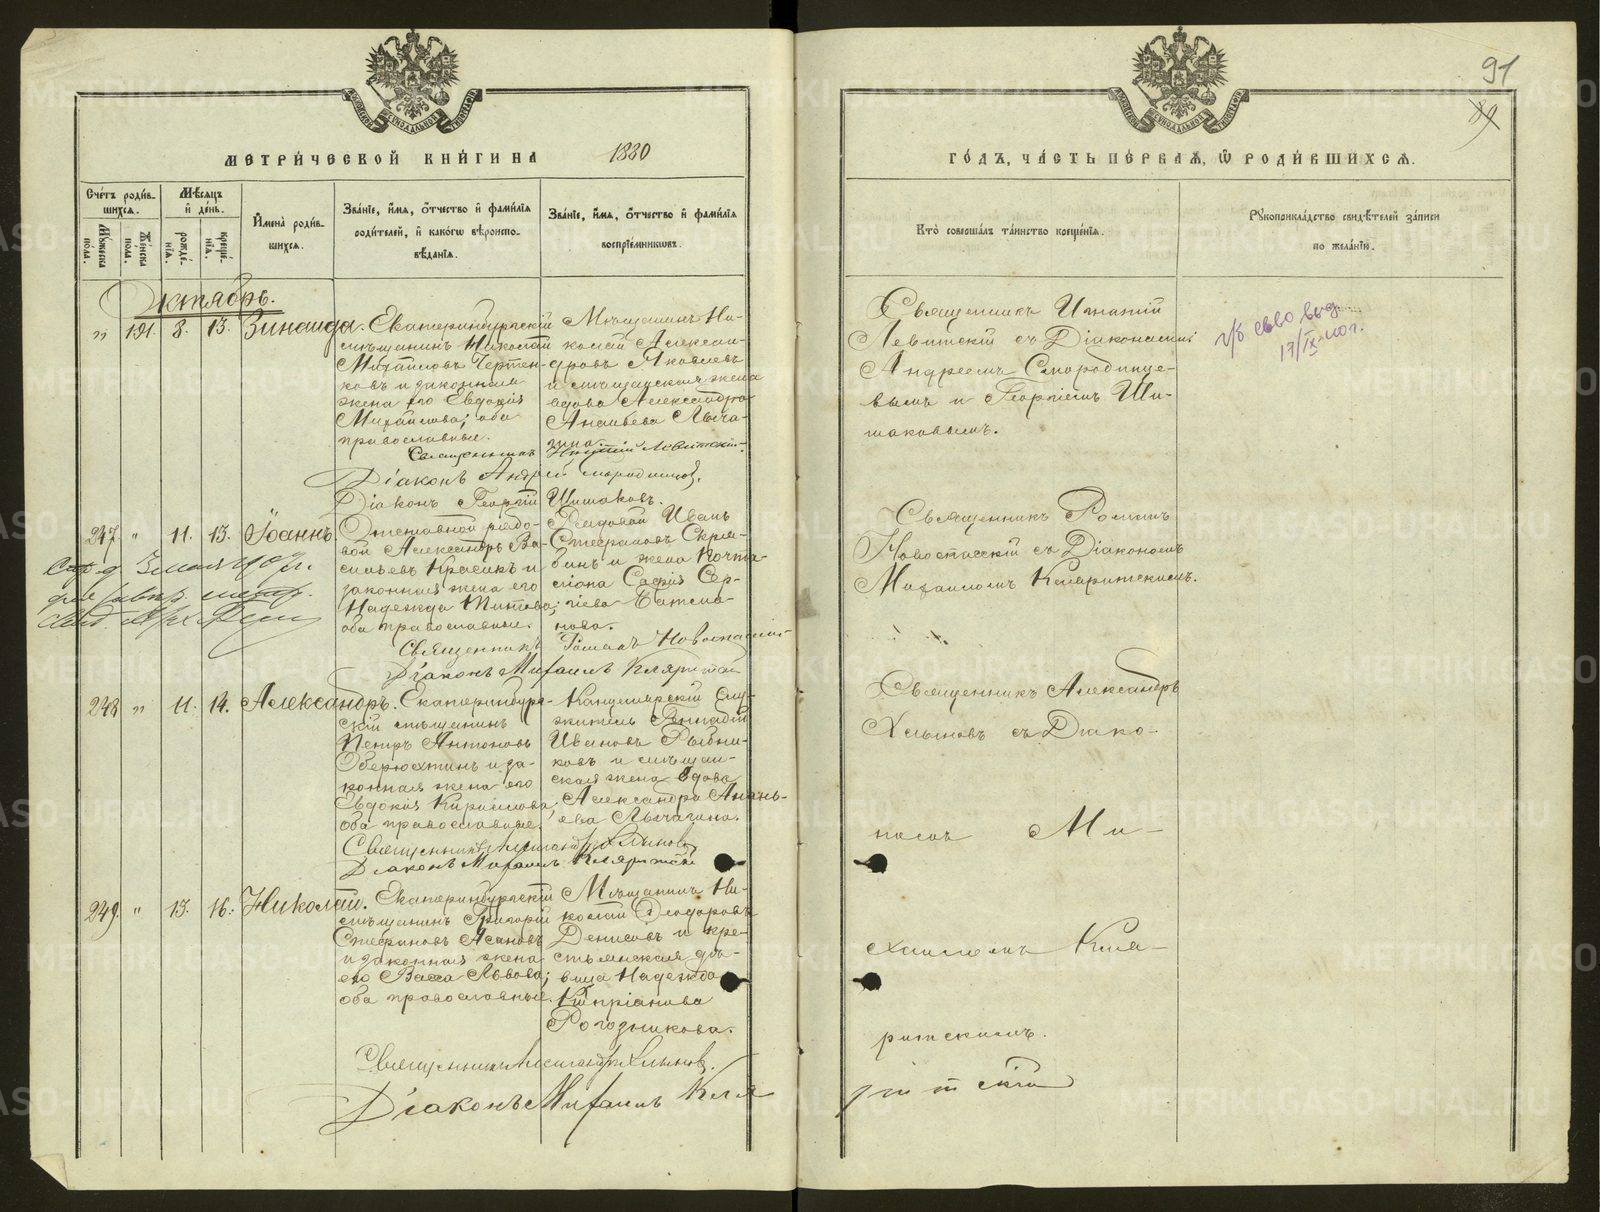 91
89
МЕТРИ́ЧЕСКОЙ КНИ́ГИ НА 1880
ГО́ДЪ, ЧА́СТЬ ПЕ́РВАЯ, Ѡ РОДИ́ВШИХСЯ.
Сче́тъ роди́в-
шихся.
Му́жеска по́ла.
Же́нска по́ла.
Мѣ́сяцъ
и҆ де́нь.
рожде́-
нїя.
креще́-
нїя.
И҆мена̀ роди́в-
шихся.
Зва́нїе, и҆́мя, ѻ҆́тчество и҆ фами́лїя
роди́телей, и҆ како́гѡ вѣроиспо-
вѣ́данїя.
Зва́нїе, и҆́мя, ѻ҆́тчество и҆ фами́лїя
воспрїе́мникѡвъ.
Кто̀ соверша́лъ та́инство креще́нїя.
Рꙋкоприкла́дство свидѣ́телей за́писи
по жела́нїю.
Октябрь.
„ 191 8. 13. Зинаида.
Екатеринбургскій
мѣщанинъ Николай
Михайловъ Чертен-
ковъ и законная
жена его Евдокія
Михайлова; оба
православные.
Мѣщанинъ Ни-
колай Алексан-
дровъ Яковлевъ
и мѣщанская жена
вдова Александра
Ананьева Лыча-
гина.
Священникъ Игнатій Левитскій.
Діаконъ Андрей Смородинцев.
Діаконъ Георгій Шишаковъ.
Священникъ Игнатій
Левитскій съ Діаконами
Андреемъ Смородинце-
вымъ и Георгіемъ Ши-
шаковымъ.
17/IX
247. „ 11. 13. Іоаннъ
Отставной рядо-
вой Александръ Ва-
сильевъ Красикъ и
законная жена его
Надежда Титова;
оба православные.
Рядовой Иванъ
Стефановъ Скря-
бинъ и жена Почта-
ліона Софія Сер-
гіева Батма-
нова.
Священникъ Романъ Новоспасскій
Діаконъ Михаилъ Кляритскій
Священникъ Романъ
Новоспасскій съ Діакономъ
Михаиломъ Кляритскимъ.
248 „ 11. 14. Александръ.
Екатеринбург-
скій мѣщанинъ
Петръ Антоновъ
Оберюхтинъ и за-
конная жена его
Евдокія Кириллова;
оба православные.
Канцелярскій слу-
житель Геннадій
Ивановъ Рыбни-
ковъ и мѣщан-
ская жена вдова
Александра Анань-
ева Лычагина.
Священникъ Александръ Хлыновъ
Діаконъ Михаилъ Кляритскій
Священникъ Александръ
Хлыновъ съ Діако-
номъ Ми-
249. „ 13. 16. Николай.
Екатеринбургскій
мѣщанинъ Григорій
Стефановъ Асановъ
и законная жена
его Васса Львова;
оба православные.
Мѣщанинъ Ни-
колай Ѳеодоровъ
Денисовъ и кре-
стьянская дѣ-
вица Надежда
Кипріанова
Рогозникова.
Священникъ Александръ Хлыновъ.
Діаконъ Михаилъ Кля
хаиломъ Кля-
ритскимъ.
ритскій
METRIKI.GASO-URAL.RU